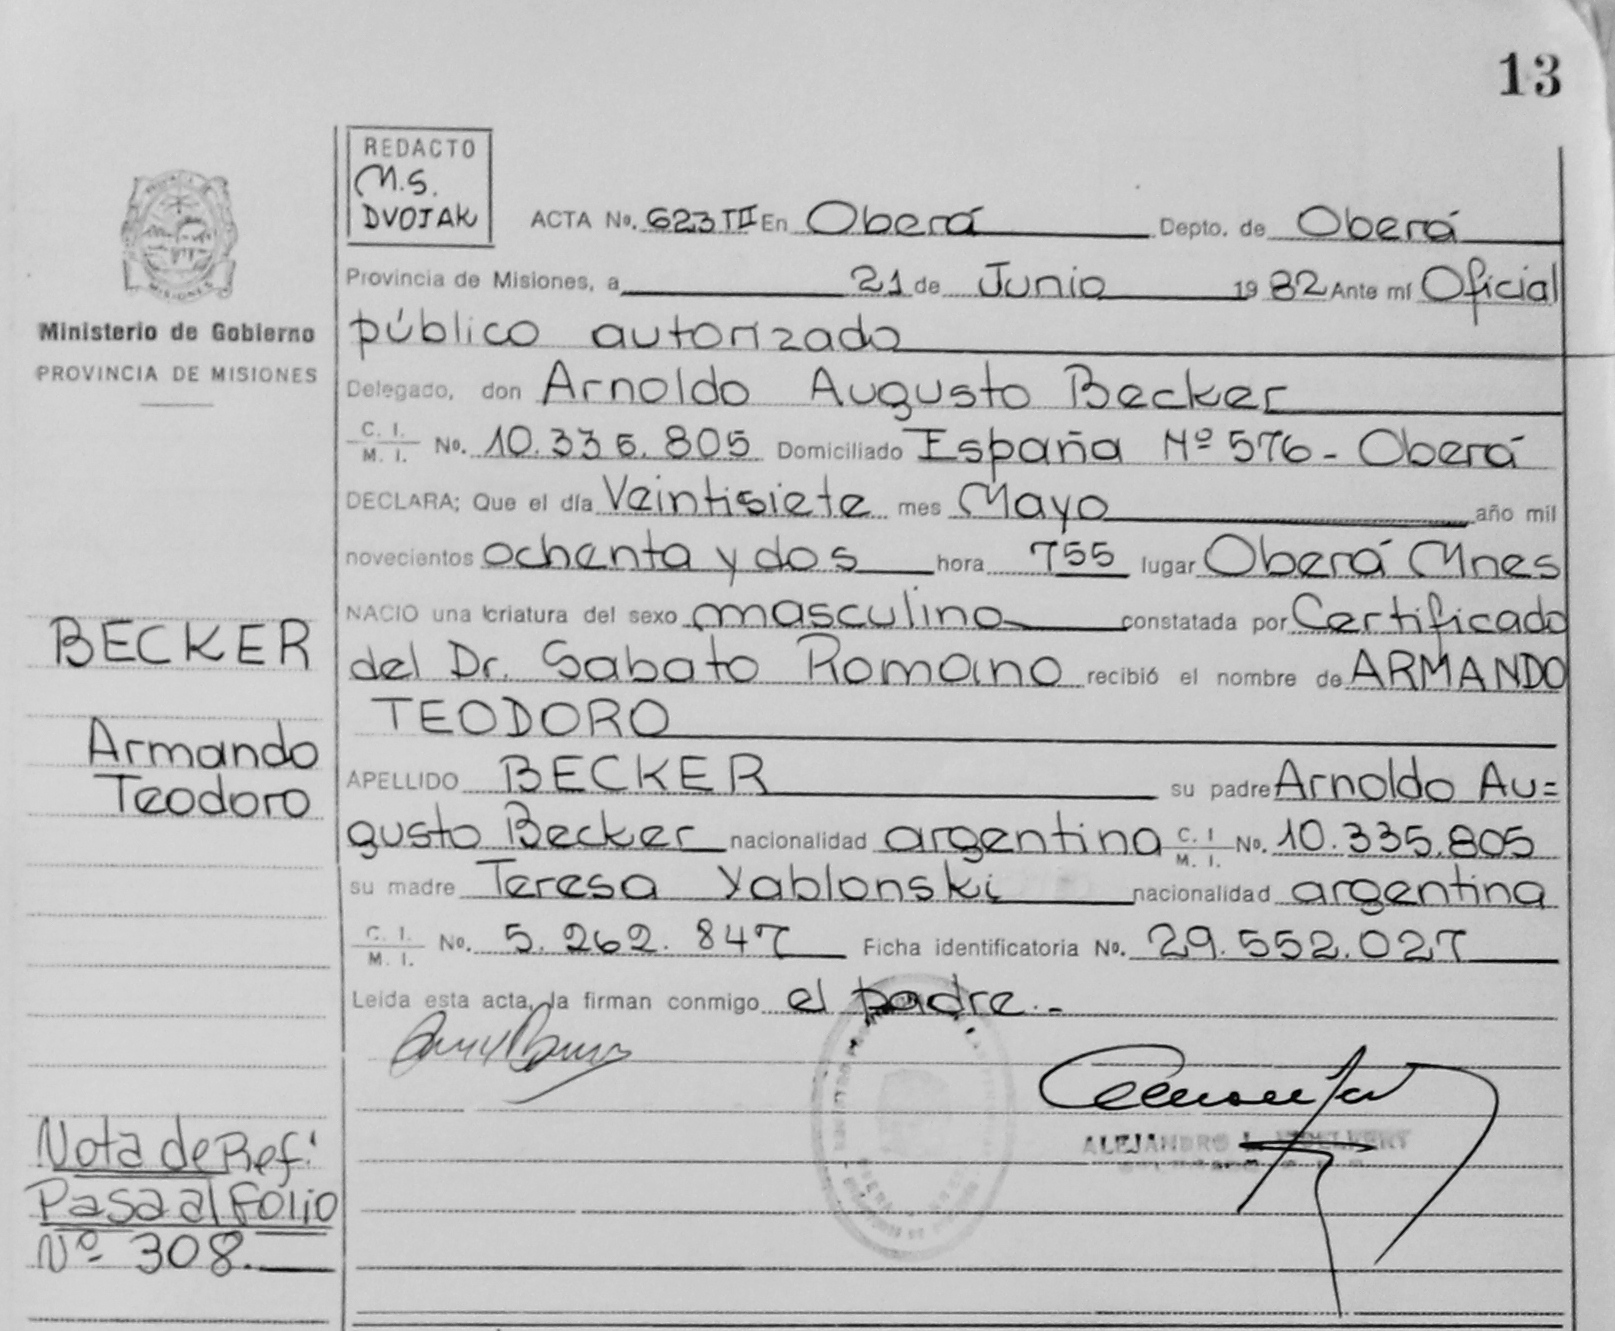 13
REDACTO
M.S.
DVOJAK
ACTA No. 623 III En Oberá Depto. de Oberá
Provincia de Misiones, a 21 de Junio 1982 Ante mí Oficial
Ministerio de Gobierno
público autorizado
PROVINCIA DE MISIONES
Delegado, don Arnoldo Augusto Becker
C. I.
M. I. No. 10.335.805 Domiciliado España Nº 576 - Oberá
DECLARA; Que el día Veintisiete mes Mayo año mil
novecientos ochenta y dos hora 755 lugar Oberá Mnes
NACIO una criatura del sexo masculino constatada por Certificado
BECKER
del Dr. Sabato Romano recibió el nombre de ARMANDO
TEODORO
Armando
Teodoro
APELLIDO BECKER su padre Arnoldo Au=
gusto Becker nacionalidad argentina C. I. M. I. No. 10.335.805
su madre Teresa Yablonski nacionalidad argentina
C. I.
M. I. No. 5.262.847 Ficha identificatoria No. 29.552.027
Leida esta acta, la firman conmigo el padre.-
ALEJANDRO
Nota de Ref:
Pasa al Folio
Nº 308.
MISIONES